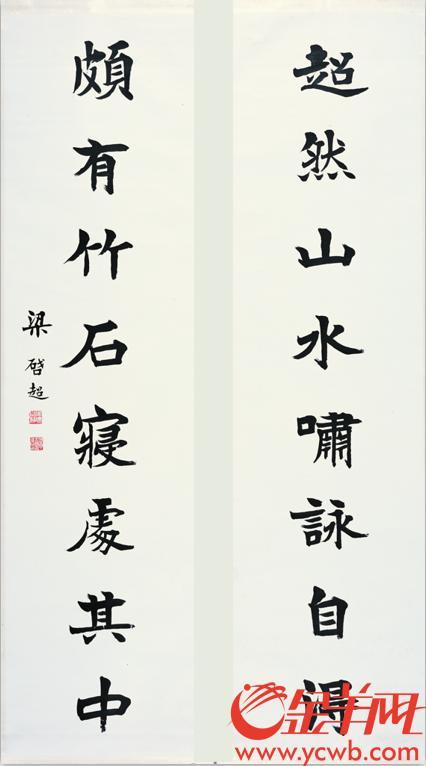 超然山水嘯詠自得
頗有竹石寢處其中
梁啓超
金羊网
www.ycwb.com